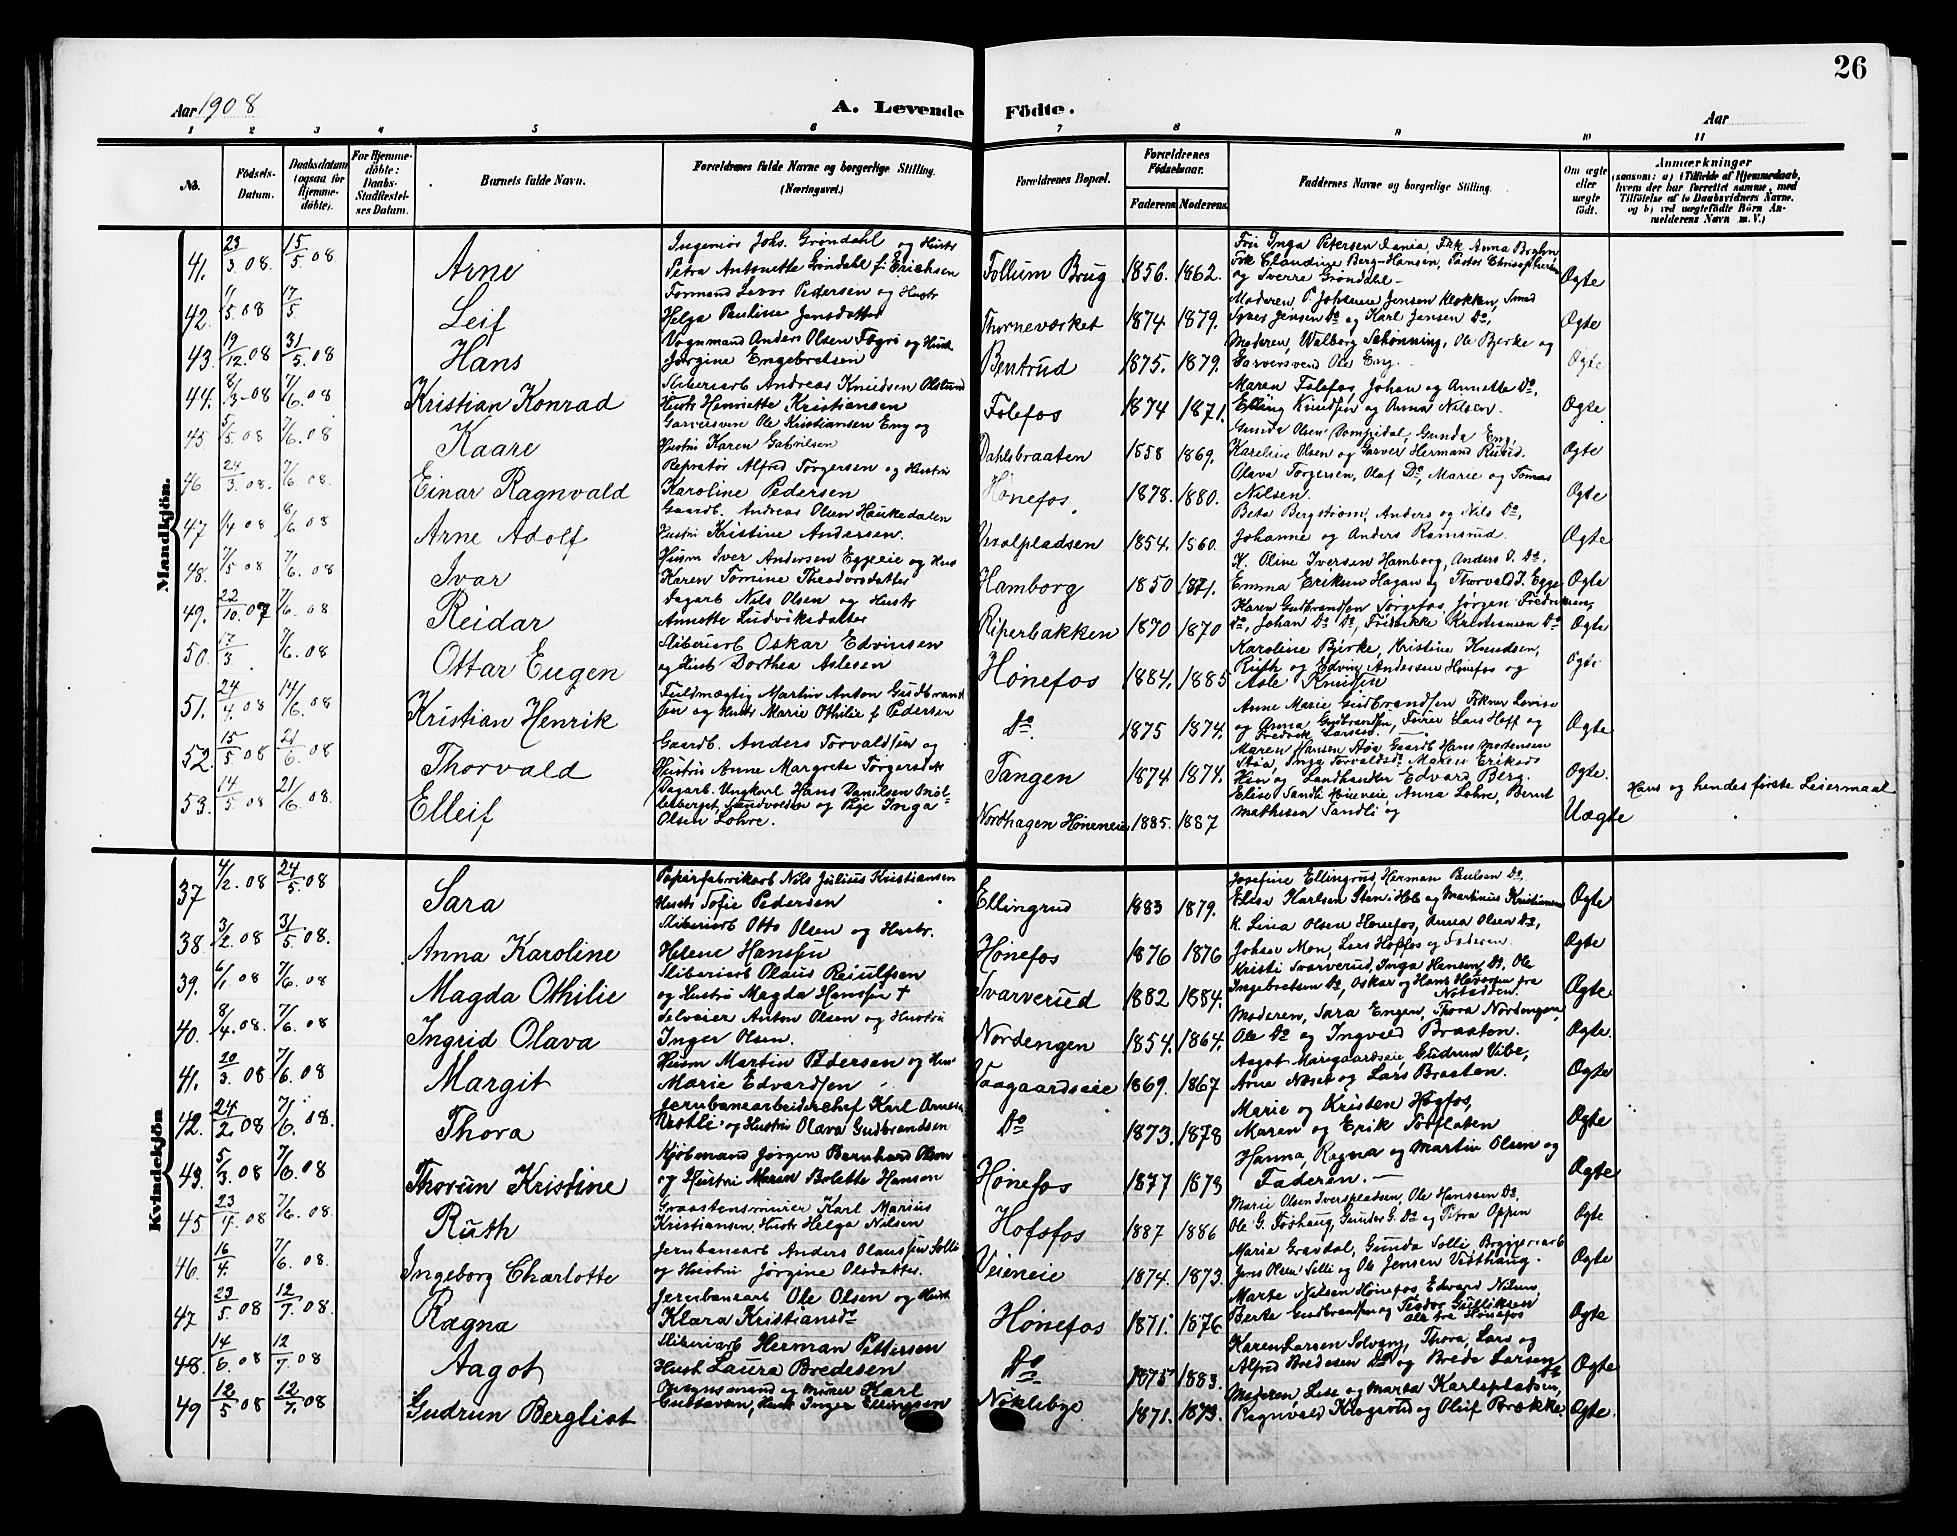 26
Aar 1908
A. Levende Födte.
Aar
1 2 3 4 5 6 7 8 9 10 11
No.
Födsels-Datum.
Daabsdatum (ogsaa for Hjemme-döbte).
For Hjemme-döbte: Daabs-Stadfæstel-ses Datum.
Barnets fulde Navn.
Forældrenes fulde Navne og borgerlige Stilling. (Næringsvei.)
Forældrenes Bopæl.
Forældrenes Födselsaar.
Faderens Moderens
Faddernes Navne og borgerlige Stilling.
Om ægte eller uægte födt.
Anmærkninger
(saasom: a) i Tilfælde af Hjemmedaab,
hvem der har forrettet samme, med
Tilföielse af to Daabsvidners Navne,
og b) ved uægtefödte Börn An-
melderens Navn m. V.)
Mandkjön.
41. 23/3 08. 15/5 08 Arne
Ingeniør Johs. Grøndahl og Hustr
Petra Antonette Grøndahl f. Erichsen
Follum Brug 1856. 1862.
og Sverre Grøndahl Ægte
42. 11/5 08 17/5 Leif
Formand Pedersen og Hustr
Helga Pauline Jensdatter
Thorneværket 1874 1879.
Jensen Do og Karl Jensen Do, Ægte
43. 19/12 08 31/5 08 Hans
Vognmand Anders Olsen og Hustr
Jørgine Engebretsen
Bentrud 1875. 1879.
Moderen, Walborg Schønning, Ole Bjerke og
Garversvend Ole Eng. Ægte
44. 8/3 08 7/6 08 Kristian Konrad
Sliberiarb Andreas Knudsen
Hustr Henriette Kristiansen
Følefos 1874 1871.
Maren Følefos, Johan og Annette Do,
Elling Knudsen og Anna Nilsen. Ægte
45. 5/5 08 7/6 08 Kaare
Garversven Ole Kristiansen Eng og
Hustru Karen Gabrilsen
Dahlsbraaten 1858 1869.
Gunda Olsen Gunda Eng,
Karelius Olsen og Garver Hermand Ægte
46. 24/3 08. 7/6 08 Einar Ragnvald
Alfred Torgersen og Hustru
Karoline Pedersen
Hønefos. 1878. 1880.
Olava Torgersen, Olaf Do, Marie og Tomas
Nilsen. Ægte
47 1/4 08 8/6 08 Arne Adolf
Gaardb. Andreas Olsen Haukedalen
Hustru Kristine Andersen.
1854. 1860.
Beta Bergstrøm, Anders og Nils Do,
Johanne og Anders Ramsrud. Ægte
48. 7/5 08 7/6. 08 Ivar
Husm Iver Andersen Eggeeie og Hus
Karen Tomine Theodorsdatter
Hamborg 1850 1871.
K. Oline Iversen Hamborg, Anders Do.
Emma Eriksen Hagan og Thorvald I. Egge Ægte
49. 22/10 07 7/6 08 Reidar
Dagarb Nils Olsen og Hustr
Annette Ludviksdatter
Riperbakken 1870 1870
Karen Gudbrandsen Jørgen Fredriksen,
Do, Johan Do Do, Fredrikke Kristiansen Do Ægte
50. 17/3. 7/6. 08 Ottar Eugen
Sliberiarb Oskar Edvinsen
og Hust Dorthea Aslesen
Hønefos 1884. 1885
Karoline Bjerke, Kristine Knudsen,
Ruth og Edvin Andersen Hønefos og
Asle Knudsen Ægte
51. 24/4 08 14/6 08 Kristian Henrik
Fuldmægtig Martin Anton Gudbrand
sen og Hustr Marie Othilie f Pedersen
Do. 1875 1874.
Anne Marie Gudbrandsen Lovise
og Anna Gudbrandsen, Lars Hoff og
Fredrik Larsen. Ægte
52. 15/5 08 21/6 08 Thorvald
Gaardb. Anders Torvaldsen og
Hustru Anne Margrete Torgersdt
Tangen 1874 1874.
Maren Hansen Støa, Gaardb Hans Mortensen
Støa, Inga Torvaldsd Maren Eriksd
Hen og Landhandler Edvard Berg. Ægte.
53. 14/5 08 21/6 08. Elleif
Dagarb. Ungkarl Hans Danielsen
og Pige Inga
Olsen Lohre.
Nordhagen Høneneie 1885. 1887
Elise Sandli Høneneie, Anna Lohre, Bernt
Mathesen Sandli og Uægte
Hans og hendes første Leiermaal
Kvindekjön
37 4/2. 08 24/5. 08 Sara
Papirfabrikarb Nils Julius Kristiansen
Hustr Sofie Pedersen
Ellingrud 1883 1879.
Josefine Ellingrud, Herman Paulsen Do
Elise Karlsen og Martinus Kristiansen Ægte
38. 3/2. 08 31/5 08. Anna Karoline
Sliberiarb Otto Olsen og Hustr.
Helene Hansen
Hønefos 1876 1876
K. Lina Olsen Hønefos, Anna Olsen Do,
Johan Moen, Lars Hoffos og Faderen. Ægte
39. 6/1 08 7/6. 08 Magda Othilie
Sliberiarb Olaus Reiulfsen
og Hustru Magda Hansen †
Svarverud 1882 1884.
Kristi Svarverud, Inga Hansen Do, Ole
Ingebretsen Do, Oskar og Hans fra
Ægte
40. 8/4 08. 7/6. 08 Ingrid Olava
Selveier Anton Olsen og Hustru
Inger Olsen.
Nordengen 1854. 1864.
Moderen, Sara Engen, Thora Nordengen,
Ole Do og Ingvald Braaten. Ægte.
41. 20/3. 08 7/6. 08 Margit
Husm Martin Pedersen og Hust
Marie Edvardsen
Vaagaardseie 1869. 1867
Aagot Gudrun Vibe,
Arne Næset og Lars Braaten. Ægte
42. 24/2. 08 7/6. 08. Thora
Jernbanearbeiderchef Karl
Vestli og Hustru Olava Gudbrandsen
Do 1873. 1878
Marie og Kristen Høgfos,
Maren og Erik Ægte
43. 5/3. 08 7/6. 08 Thorun Kristine
Kjøbmand Jørgen Bernhard Olsen
og Hustru Maren Bolette Hansen
Hønefos 1877 1873
Hanna, Ragna og Martin Olsen og
Faderen. Ægte
45 23/4. 08 7/6. 08. Ruth
Karl Marius
Kristiansen, Hustr Helga Nilsen
Hofsfos 1887 1886
Marie Olsen Iverspladsen, Ole Hanssen Do.
Ole G. Gunder G. Do og Petra Oppen Ægte
46. 16/4. 7/6. 08 Ingeborg Charlotte
Jernbanearb Anders Olaussen Solli
og Hustru Jørgine Olsdatter.
Veieneie 1874. 1873.
Marie Gravdal, Gunda Solli Bryggeriarb
Jens Olsen Solli og Ole Jensen Ægte
47 23/5. 08 12/7. 08. Ragna
Jernbanearb Ole Olsen og Hustr
Klara Kristiansdt
Hønefos 1871. 1876
Marte Nielsen Hønefos, Edvard Nilsen,
Berte Gudbrandsen og Teodor Gulliksen
alle fra Hønefos Ægte
48. 14/6. 08 12/7. 08 Aagot
Sliberiarb Herman Pettersen
Hust Laura Bredesen
Do 1875 1883.
Karen Larsen Solvang, Thora, Lars og
Alfred Bredesen Do og Brede Larsen Ægte
49 12/5 08 12/7. 08 Gudrun Bergliot
og Murer Karl
Gustavsen, Hust Inger Ellingsen
Nøklebye 1871. 1873.
Moderen, Lise og Marta Karlspladsen,
Ragnvald og Oluf Brække. Ægte